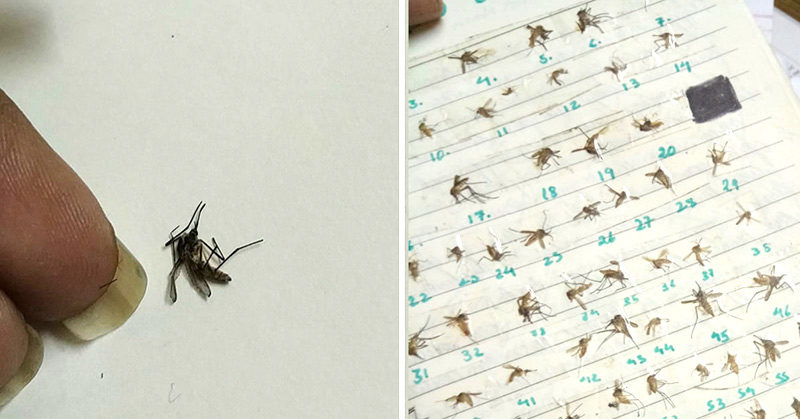 3. 4. 5. 6. 7.
10. 11 12 13 14
17. 18 19 20
22 23 24 25 26 27 28 29
31 32 33 34 35 36 37
41 42 43 44 45 46
53 54 55